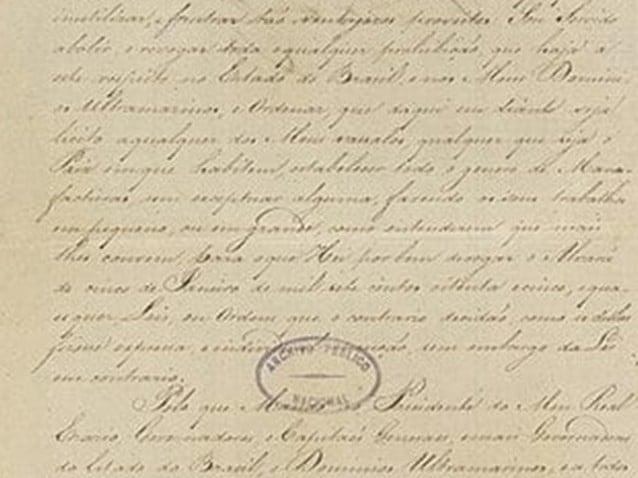 inutilizar, e frustrar tão vantajosos proveitos: Sou Servido
abolir, e revogar toda e qualquer prohibição, que haja a
este respeito no Estado do Brasil, e nos Meus Domini-
os Ultramarinos, e Ordenar, que daqui em diante seja
licito a qualquer dos Meus vassalos, qualquer que seja o
Paiz em que habitem, estabelecer todo o genero de Manu-
facturas sem exceptuar alguma, fazendo os seus trabalhos
em pequeno, ou em grande, como entenderem que mais
lhes convem, para o que Hei por bem derogar o Alvará
de cinco de Janeiro de mil sete centos oitenta e cinco, e qua-
es quer Leis, ou Ordens que o contrario decidão, como se dellas
fizesse expressa, e individual menção, sem embargo da Lei
em contrario.
Pelo que Mando ao Presidente do Meu Real
Erario, Governadores, e Capitães Generaes, e mais Governadores
do Estado do Brasil, e Dominios Ultramarinos, e a todos
ARCHIVO PUBLICO
NACIONAL